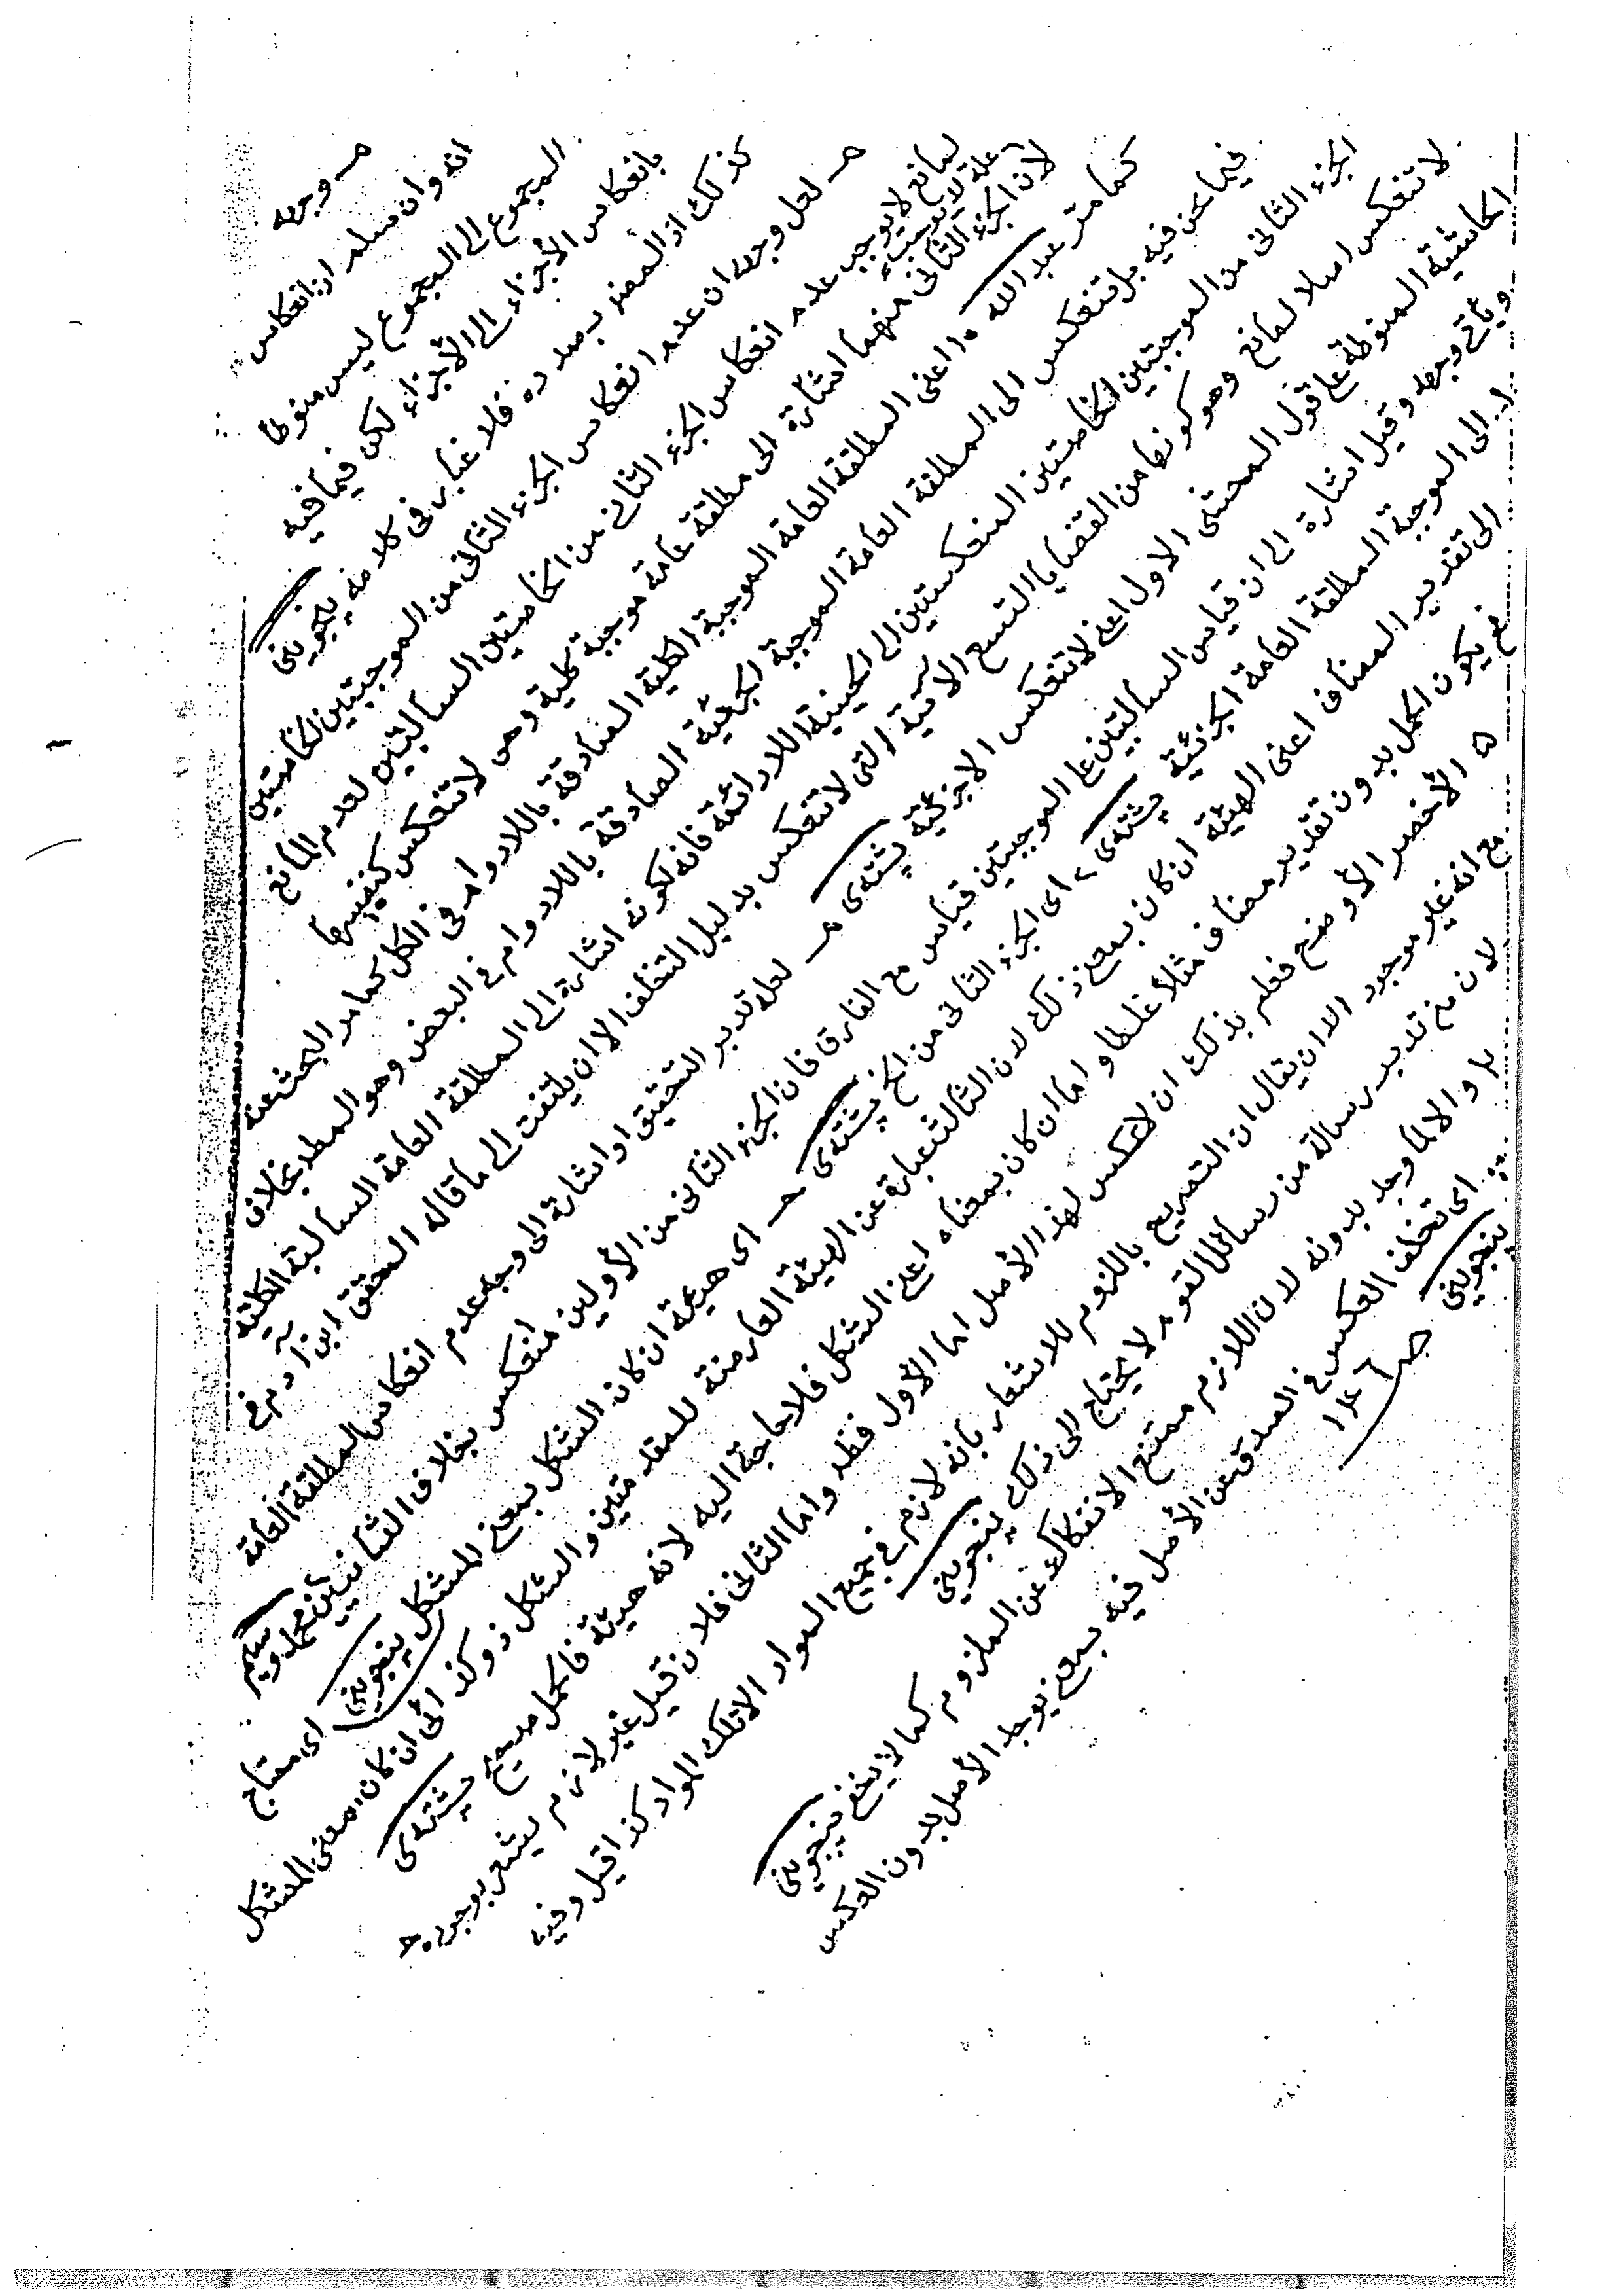 صـ وجهه
انه وان سلم ان انعكاس
المجموع الى المجموع ليس منوطا
بانعكاس الأجزاء الى الأجزاء لكن فيما فيه
كذلك اذ المضر بصدده فلا غبار فى كلامه ينجوينى
صـ لعل وجهه ان عدم انعكاس الجزء الثانى من الموجبتين الخاصتين
لمانع لا يوجب عدم انعكاس الجزء الثانى من الخاصتين السالبتين لعدم المانع
علة لا يوجب
لان الجزء الثانى منهما اشارة الى مطلقة عامة موجبة كلية وهى لا تنعكس كنفسها
كما مر عبد الله ه اعنى المطلقة العامة الموجبة الكلية الصادقة باللادوام فى الكل كما مر البحث عنه
فيما نحن فيه بل تنعكس الى المطلقة العامة الموجبة الجزئية الصادقة باللادوام فى البعض وهو المط بخلاف
الجزء الثانى من الموجبتين الخاصتين المنعكستين الى الحينية اللادائمة فانه لكونه اشارة الى المطلقة العامة السالبة الكلية
لا تنعكس اصلا لمانع وهو كونها من القضايا التسع الاتية التى لا تنعكس بدليل التخلف الا ان يلتفت الى ما قاله المحقق ابن آدم فى
الحاشية المنوطة على قول المحشى الاول اعنى لا تنعكس الا جزئية پشتهى صـ لعله تدبر التحقيق او اشارة الى وجه عدم انعكاس المطلقة العامة
وباقى وجهه وقيل اشارة الى ان قياس السالبتين على الموجبتين قياس مع الفارق فان الجزء الثانى من الأولين منعكس بخلاف الثانيتين محمد وسيم
الى الموجبة المطلقة العامة الجزئية پشتهى اى الجزء الثانى من الخ پشتهى صـ اى هيئة ان كان الشكل بمعنى المشكل ينجوينى اى محتاج
الى تقدير المضاف اعنى الهيئة ان كان بمعنى ذلك لان الثالث عبارة عن الهيئة العارضة للمقدمتين والشكل ذو كذا اى ان كان بمعنى المشكل
فح يكون الحمل بدون تقدير مضاف مثلا غلطا واما ان كان بمعناه اعنى الشكل فلا حاجة اليه لانه هيئة فالحمل صحيح پشتهى
ه الأخصر الأوضح فعلم بذلك ان لا عكس لهذا الأصل اما الأول فظ واما الثانى فلان قيل غير لازم يشعر بوجوده
مع انه غير موجود الا ان يقال ان التصريح باللزوم للاشعار بانه لازم فى جميع المواد الا تلك المواد كذا قيل وفيه
لان من تدبر رسالة من رسائل القوم لا يحتاج الى ذلك ينجوينى
والا لما وجد بدونه لان اللازم ممتنع الانفكاك عن الملزوم كما لا يخفى پينجوينى
اى تخلف العكس فى الصدق عن الأصل فيه بمعنى يوجد الأصل بدون العكس
پنجوينى